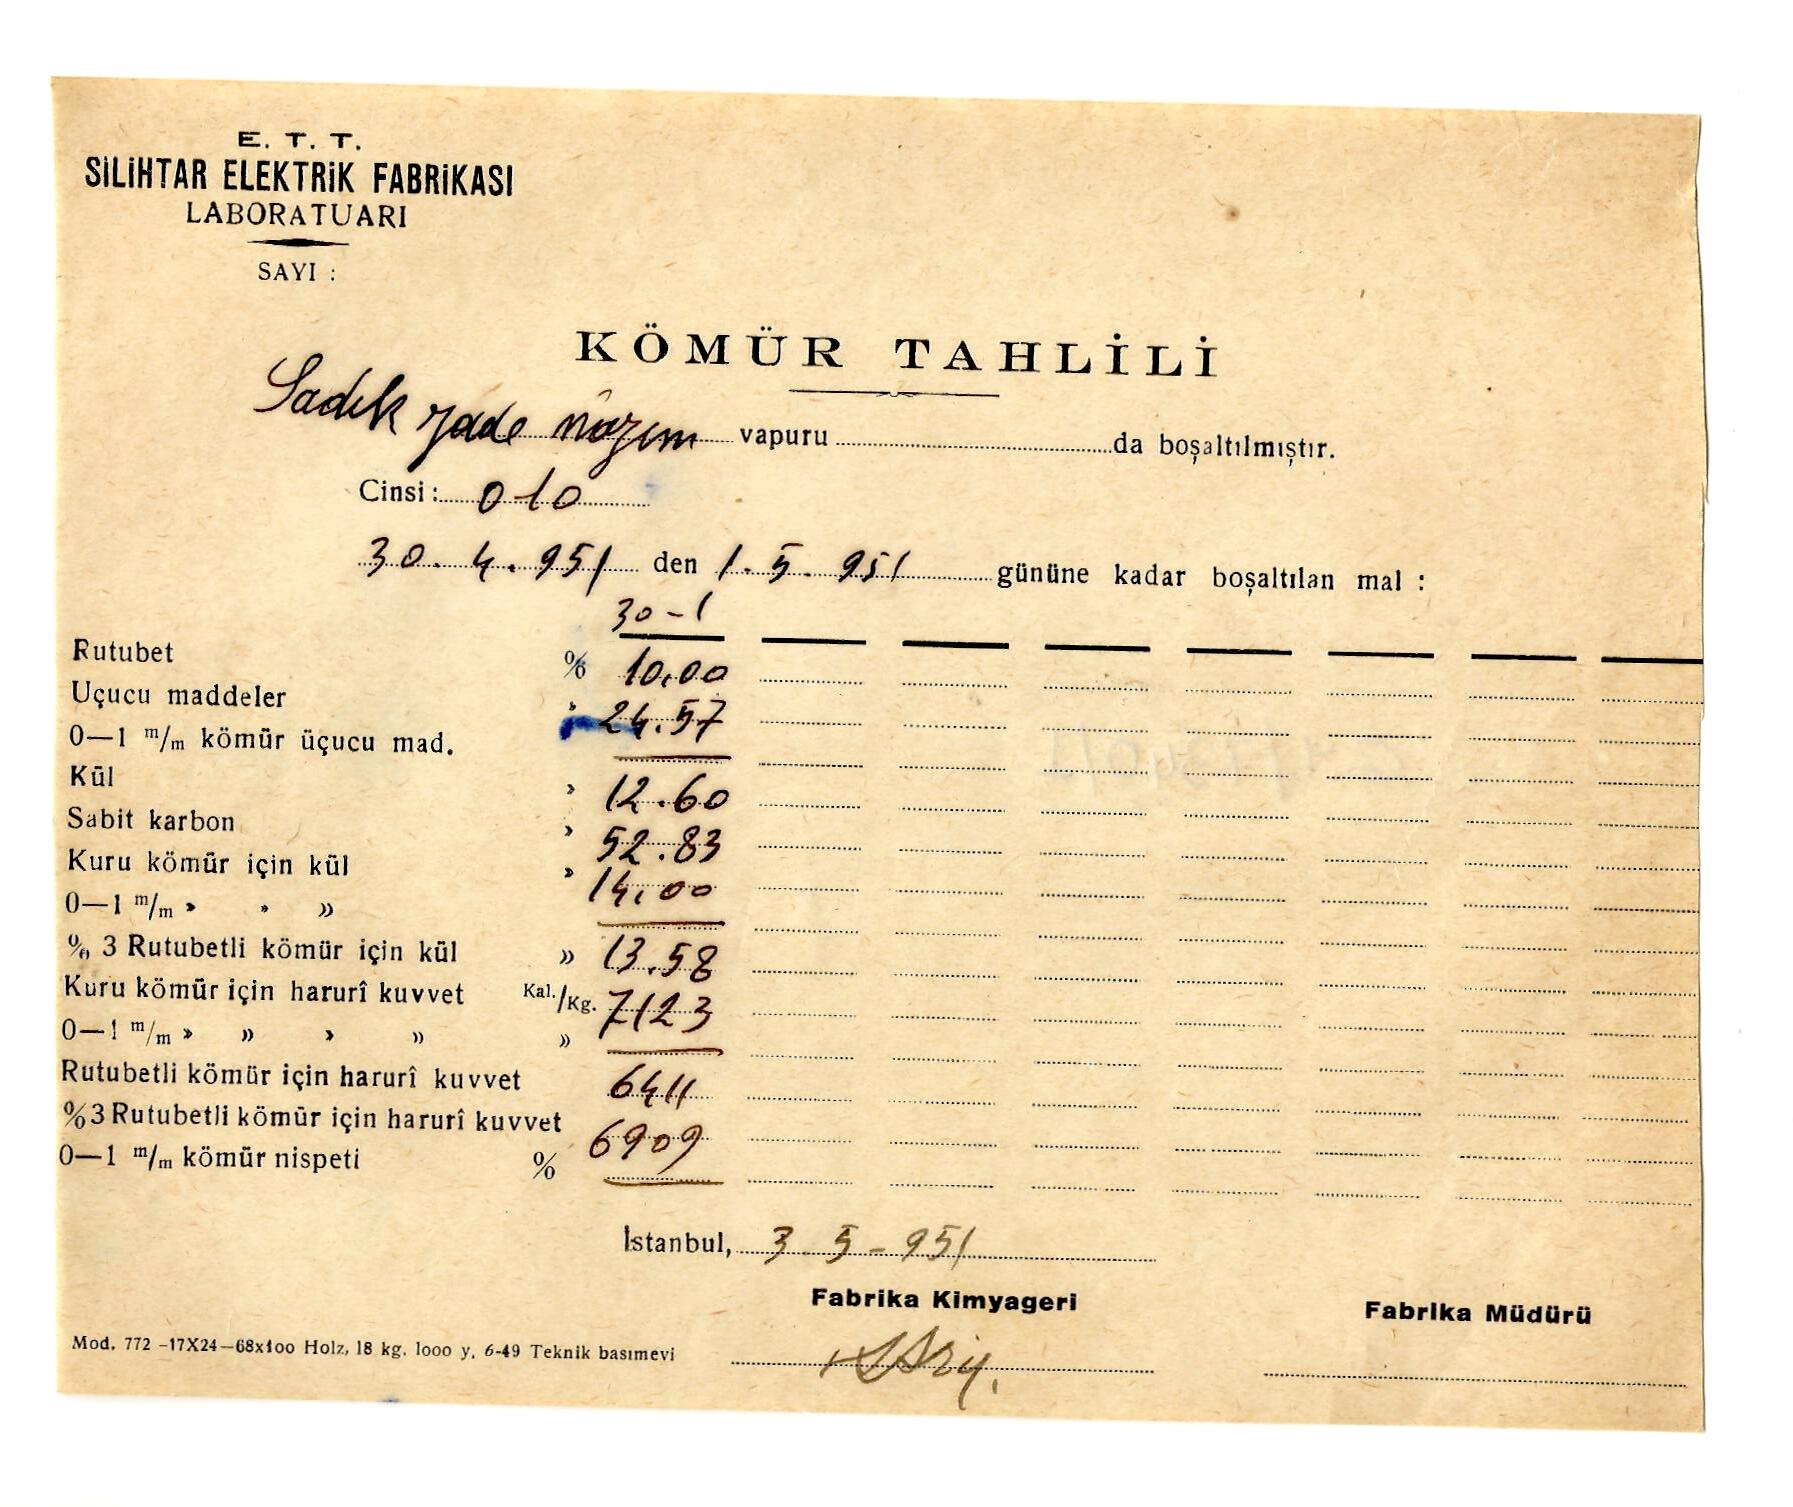 E. T. T.
SİLİHTAR ELEKTRİK FABRİKASI
LABORATUARI
SAYI :
KÖMÜR TAHLİLİ
Sadık zade nâzım vapuru da boşaltılmıştır.
Cinsi : 0-10
30. 4. 951 den 1. 5. 951 gününe kadar boşaltılan mal :
30-1
Rutubet % 10,00
Uçucu maddeler » 24.57
0—1 m/m kömür üçucu mad. —
Kül » 12.60
Sabit karbon » 52.83
Kuru kömür için kül » 14,00
0—1 m/m » » » —
% 3 Rutubetli kömür için kül » 13.58
Kuru kömür için harurî kuvvet Kal./Kg. 7123
0—1 m/m » » » » » —
Rutubetli kömür için harurî kuvvet 6411
%3 Rutubetli kömür için harurî kuvvet 6909
0—1 m/m kömür nispeti % —
İstanbul, 3 5 - 951
Fabrika Kimyageri
Fabrika Müdürü
Mod. 772 -17X24—68x100 Holz, 18 kg. 1000 y. 6-49 Teknik basımevi